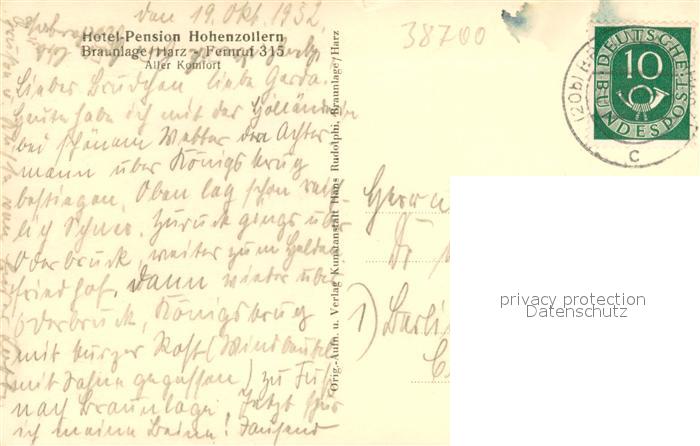 den 19. Okt. 1952
Hotel-Pension Hohenzollern
Braunlage/Harz - Fernruf 315
Aller Komfort
Liebes Brüdchen liebe Gerda.
Heute habe ich mit der Holländerin
bei schönem Wetter den Achter
mann über Königskrug
bestiegen. Oben lag schon
lich Schnee. Zurück gings über
Oderbrück, weiter zum Helden
friedhof, dann wieder über
Oderbrück, Königskrug
mit kurzer Rast (Windbeutel
mit Sahne gegessen) zu Fuß
nach Braunlage. Jetzt spür
ich meine Beine! Tausend
Orig.-Aufn. u. Verlag Kunstanstalt Hans Rudolphi, Braunlage/Harz
38700
DEUTSCHE
BUNDESPOST
10
(20b)
c
Herrn
Dr
1) Berli
privacy protection
Datenschutz